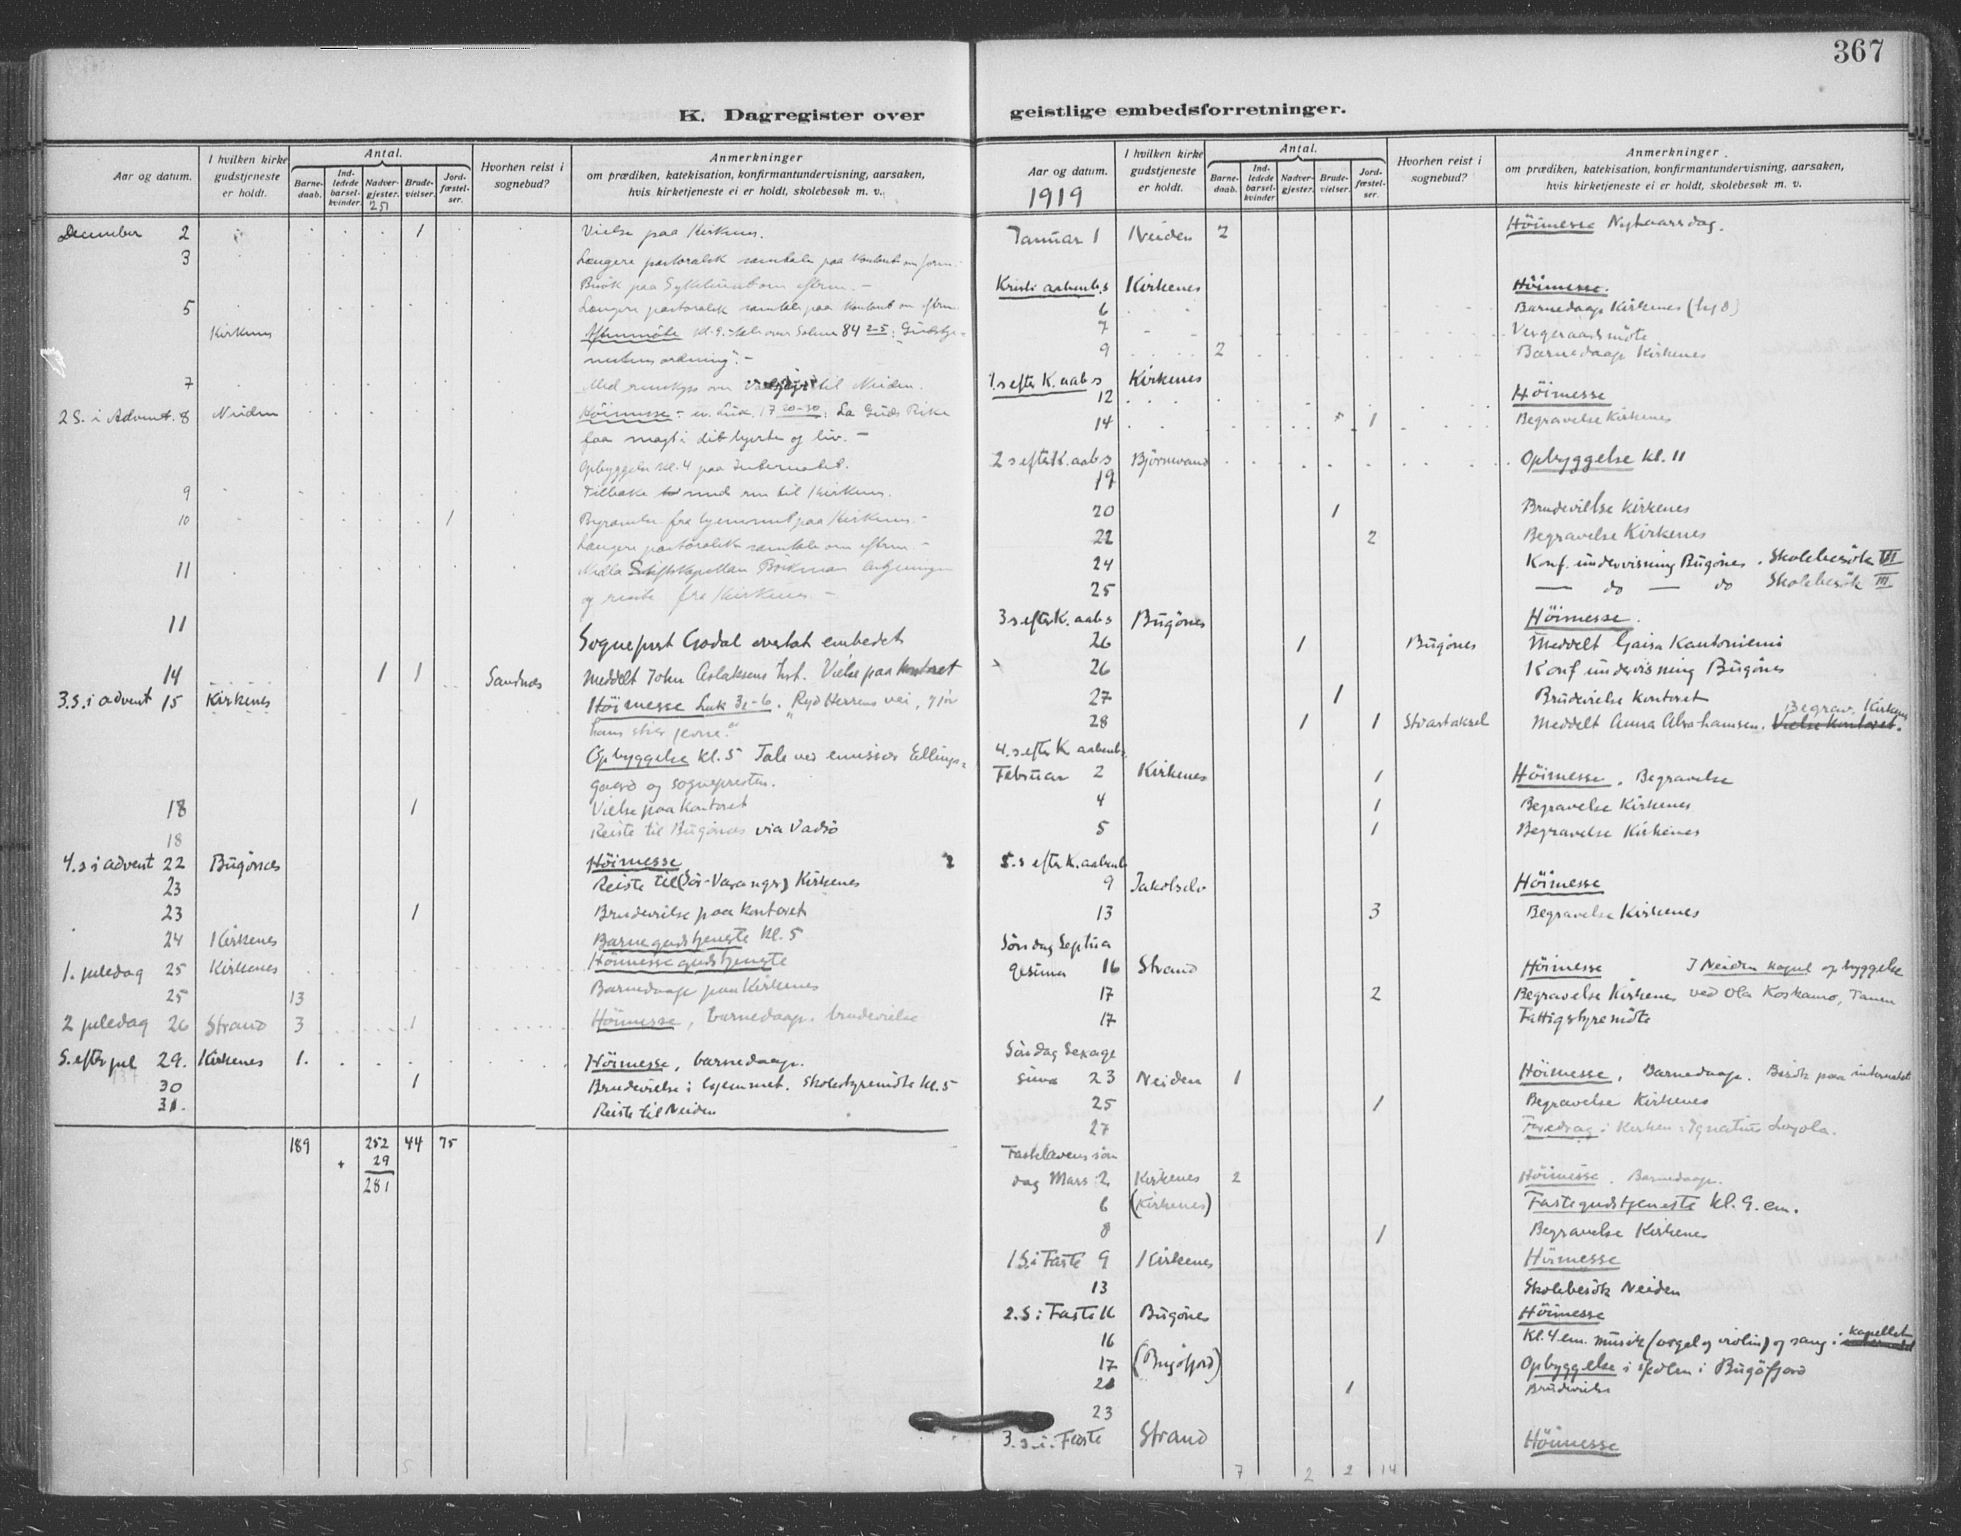 367
K. Dagregister over
geistlige embedsforretninger.
Aar og datum.
I hvilken kirke gudstjeneste er holdt.
Antal.
Barne-daab.
Ind-ledede barsel-kvinder.
Nadver-gjester.
251
Brude-vielser.
Jord-fæstel-ser.
Hvorhen reist i sognebud?
Anmerkninger
om prædiken, katekisation, konfirmantundervisning, aarsaken,
hvis kirketjeneste ei er holdt, skolebesøk m. v.
December 2 1 Vielse paa Kirkenes.
3 Længere pastoralsk samtale paa kontoret om form.
Besök paa Sykehuset om efterm. -
5 Længere pastoralsk samtale paa kontoret om efterm.
Kirkenes Aftenmöte kl. 9. Tale over Salme 84 2-5: Gudstje-
nestens ordning". -
7 til Neiden.
2 S. i Advent. 8 Neiden Höimesse - ev. Luk. 17 20-30: La Guds Rike
faa magt i dit hjerte og liv. -
Opbyggelse kl. 4 paa Internatet.
9 Tilbake med til Kirkenes.
10 1 Begravelse fra hjemmet paa Kirkenes. -
Længere pastoralsk samtale om efterm. -
11 Stiftskapellan Böckman
og reiste fra Kirkenes. -
11 Sogneprest Godal overtat embedet
14 1 1 Sandnes Meddelt John Aslaksens hst. Vielse paa kontoret
3. S. i advent 15 Kirkenes Höimesse Luk 3 1-6. "Ryd Herrens vei, gjör
hans stier jevne."
Opbyggelse kl. 5 Tale ved emissær Ellings-
gaard og sognepresten.
18 1 Vielse paa kontoret
18 Reiste til Bugönes via Vadsö
4. s i advent 22 Bugönes Höimesse
23 Reiste til (Sör-Varanger) Kirkenes
23 1 Brudevielse paa kontoret
24 Kirkenes Barnegudstjeneste kl. 5
1. juledag 25 Kirkenes Höimessegudstjeneste
25 13 Barnedaap paa Kirkenes
2 juledag 26 Strand 3 1 Höimesse, barnedaap. brudevielse
S. efter jul 29. Kirkenes 1. Höimesse, barnedaap.
30 1 Brudevielse i hjemmet. Skolestyremöte kl. 5
31. Reiste til Neiden
189 252 44 75
+ 29
281
Aar og datum.
1919
I hvilken kirke gudstjeneste er holdt.
Antal.
Barne-daab.
Ind-ledede barsel-kvinder.
Nadver-gjester.
Brude-vielser.
Jord-fæstel-ser.
Hvorhen reist i sognebud?
Anmerkninger
om prædiken, katekisation, konfirmantundervisning, aarsaken,
hvis kirketjeneste ei er holdt, skolebesøk m. v.
Januar 1 Neiden 2 Höimesse Nytaarsdag.
Kristi aabenb.s Kirkenes Höimesse.
6 Barnedaap Kirkenes
7 Vergeraadsmöte
9 2 Barnedaap Kirkenes
1. s efter K. aab s Kirkenes Höimesse
12
14 1 Begravelse Kirkenes
2 s efter K. aab s Björnevand Opbyggelse kl. 11
19
20 1 Brudevielse Kirkenes
22 2 Begravelse Kirkenes
24 Konf. undervisning Bugönes. Skolebesök VII
25 — do — do Skolebesök III
3 s efter K. aab s Bugönes Höimesse.
26 1 Bugönes Meddelt Gaisa Kantoniemi
26 Konf undervisning Bugönes
27 1 Brudevielse kontoret
28 1 1 Svartaksel Meddelt Anna Abrahamsen. Vielse kontoret. Begrav. Kirkenes
4. s efter K. aabenb.
Februar 2 Kirkenes 1 Höimesse. Begravelse
4 1 Begravelse Kirkenes
5 1 Begravelse Kirkenes
5. s efter K. aabenb
9 Jakobselv Höimesse
13 3 Begravelse Kirkenes
Söndag Septua
gesima 16 Strand Höimesse I Neiden kapel opbyggelse
17 2 Begravelse Kirkenes ved Ola Koskamo, Tanen
17 Fattigstyremöte
Söndag Sexage
sima 23 Neiden 1 Höimesse, Barnedaap. Besök paa internatet
25 1 Begravelse Kirkenes
27 Foredrag i Kirken: Ignatius Loyola.
Fastelavens sön
dag Mars 2 Kirkenes 2 Höimesse. Barnedaap.
6 (Kirkenes) Fastegudstjeneste kl. 9. em.
8 1 Begravelse Kirkenes
1 S. i Faste 9 Kirkenes Höimesse
13 Skolebesök Neiden
2. S i Faste Bugönes Höimesse
16 Kl. 4 em. musik (orgel og violin) og sang i kapellet
17 (Bugöfjord) Opbyggelse i skolen i Bugöfjord
1 Brudevielse
23
3. s. i. Faste Strand Höimesse
7 2 2 14